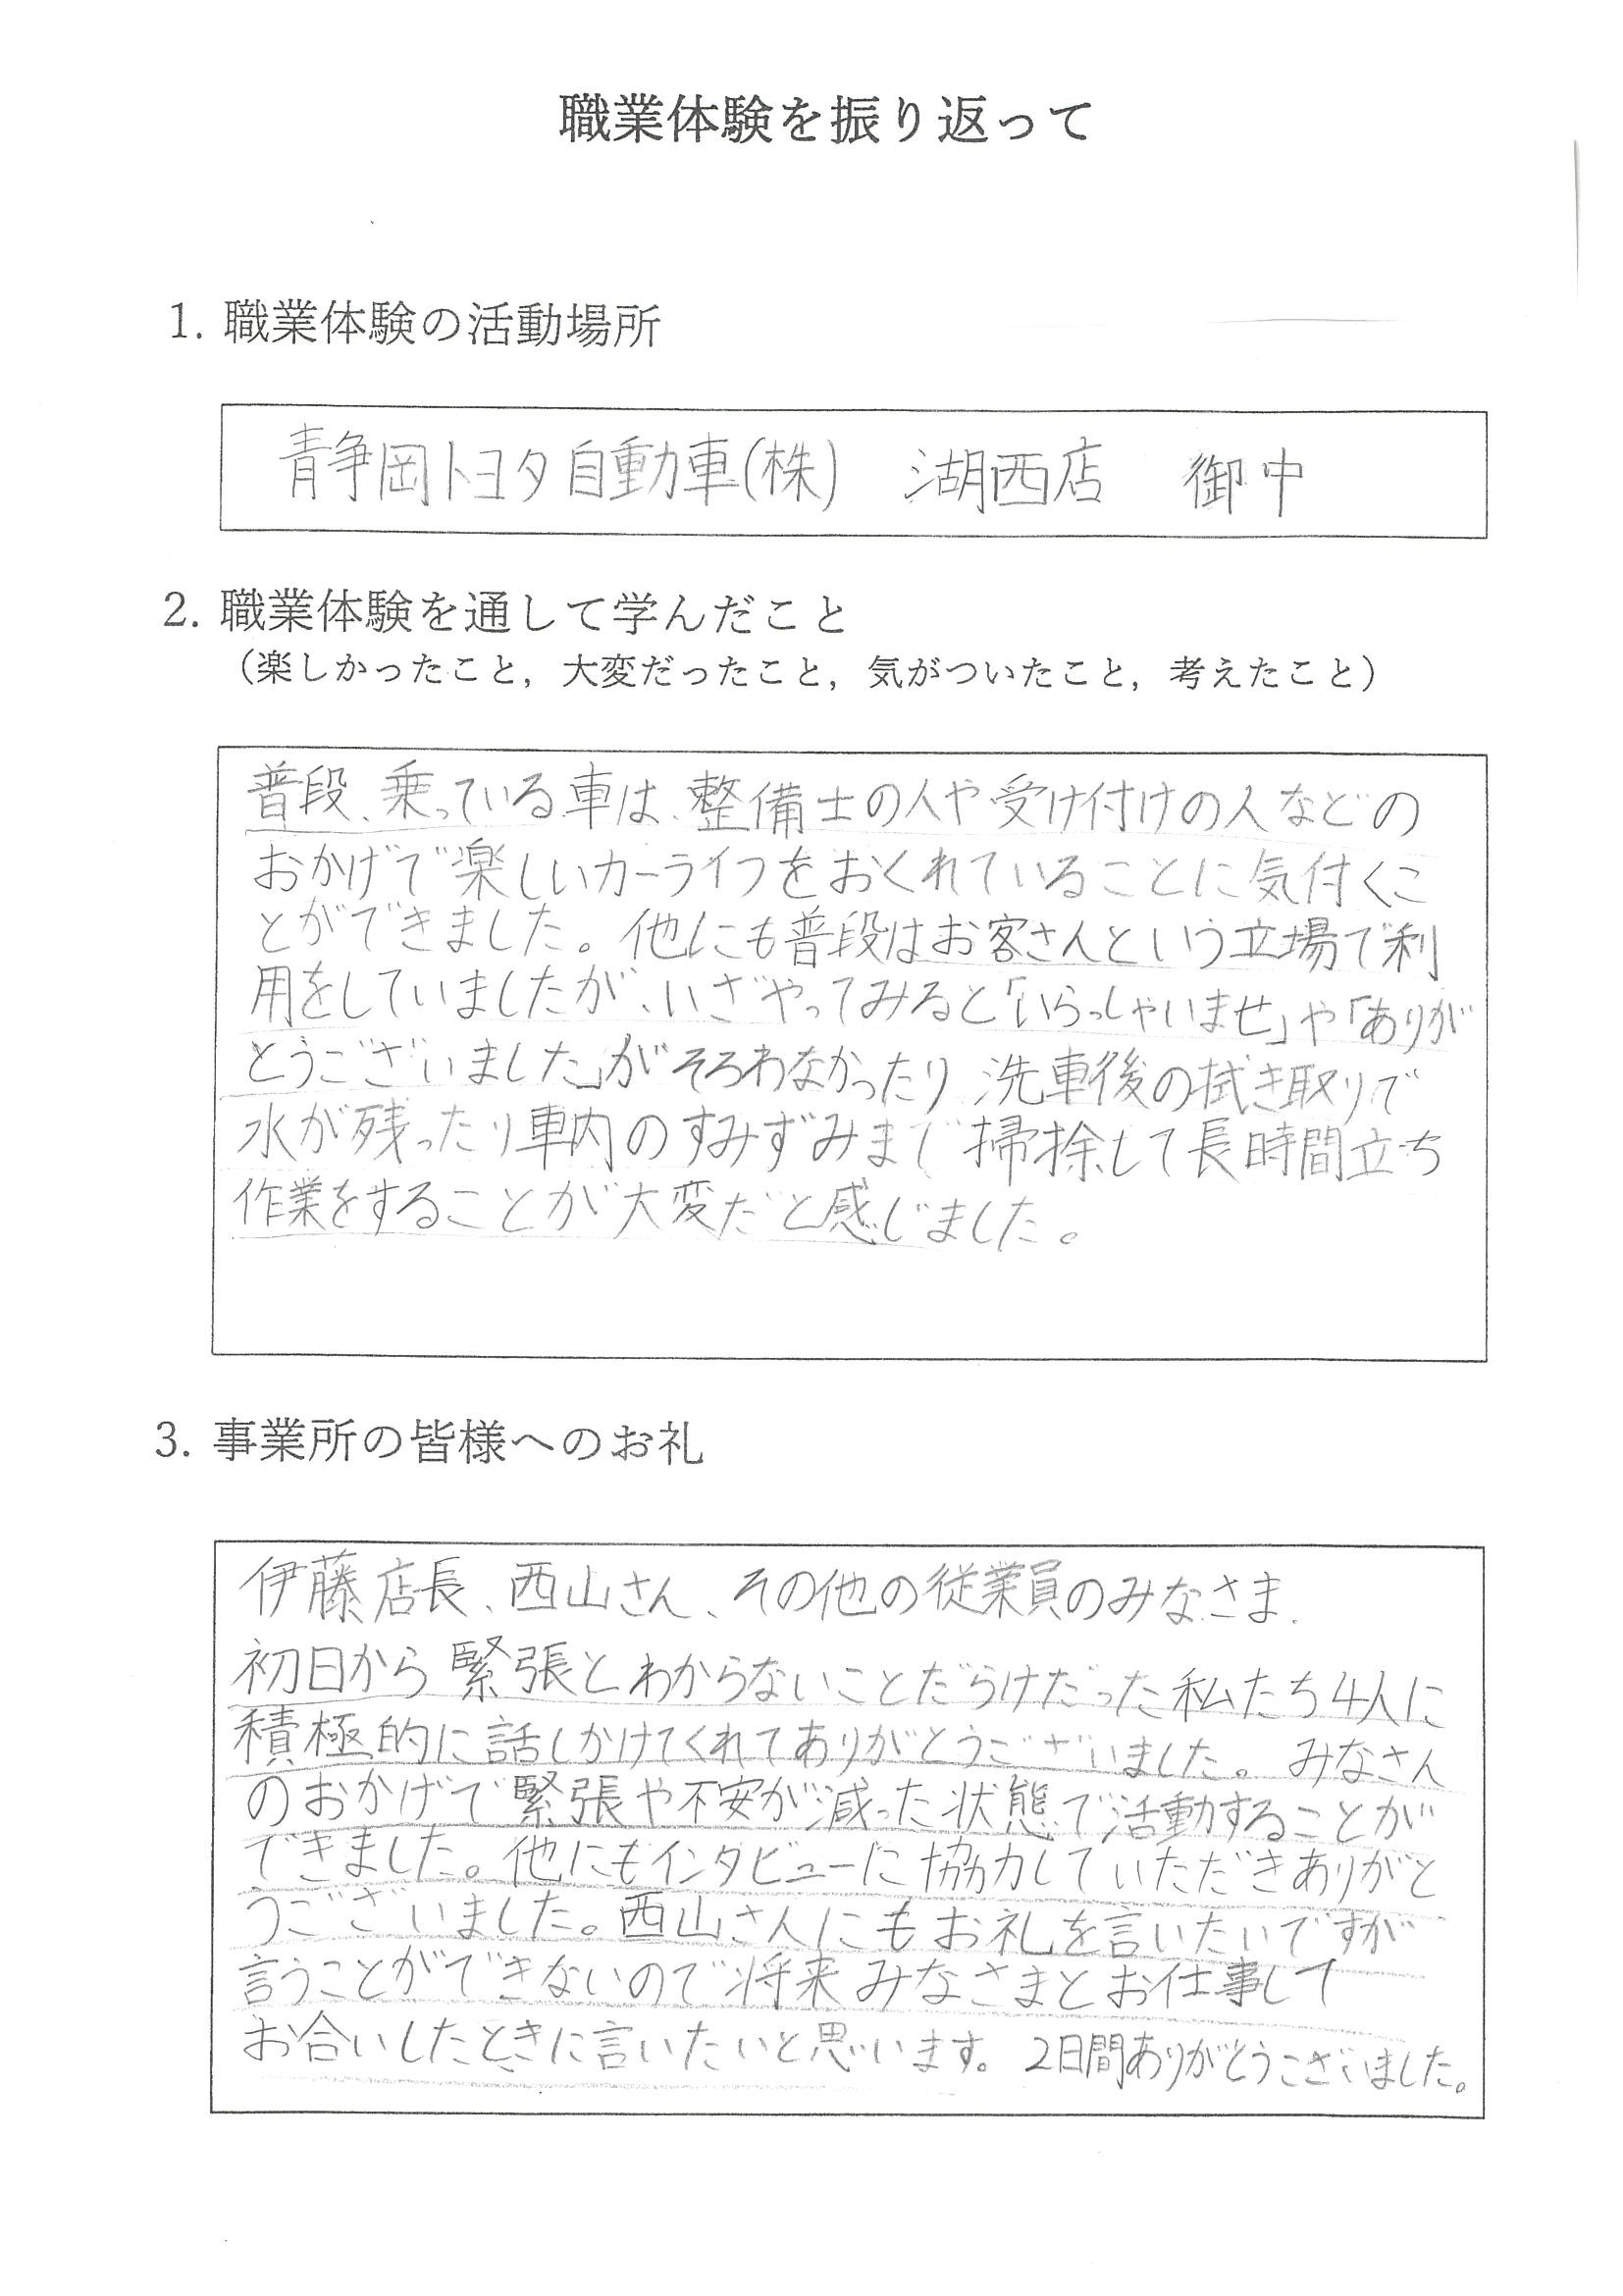 職業体験を振り返って
1. 職業体験の活動場所
静岡トヨタ自動車(株) 湖西店 御中
2. 職業体験を通して学んだこと
（楽しかったこと，大変だったこと，気がついたこと，考えたこと）
普段、乗っている車は、整備士の人や受け付けの人などの
おかげで楽しいカーライフをおくれていることに気付くこ
とができました。他にも普段はお客さんという立場で利
用をしていましたが、いざやってみると「いらっしゃいませ」や「ありが
とうございました」がそろわなかったり 洗車後の拭き取りで
水が残ったり車内のすみずみまで掃除して長時間立ち
作業をすることが大変だと感じました。
3. 事業所の皆様へのお礼
伊藤店長、西山さん、その他の従業員のみなさま、
初日から緊張とわからないことだらけだった私たち4人に
積極的に話しかけてくれてありがとうございました。みなさん
のおかげで緊張や不安が減った状態で活動することが
できました。他にもインタビューに協力していただきありがと
うございました。西山さんにもお礼を言いたいですが
言うことができないので将来みなさまとお仕事して
お合いしたときに言いたいと思います。2日間ありがとうございました。